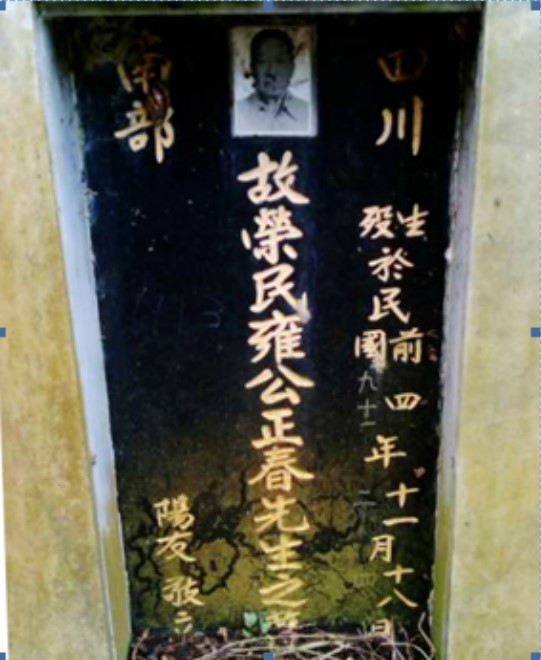 四川
生於民前四年十一月十八日
歿國九十一二四
故榮民雍公正春先生之墓
南部
陽友敬立